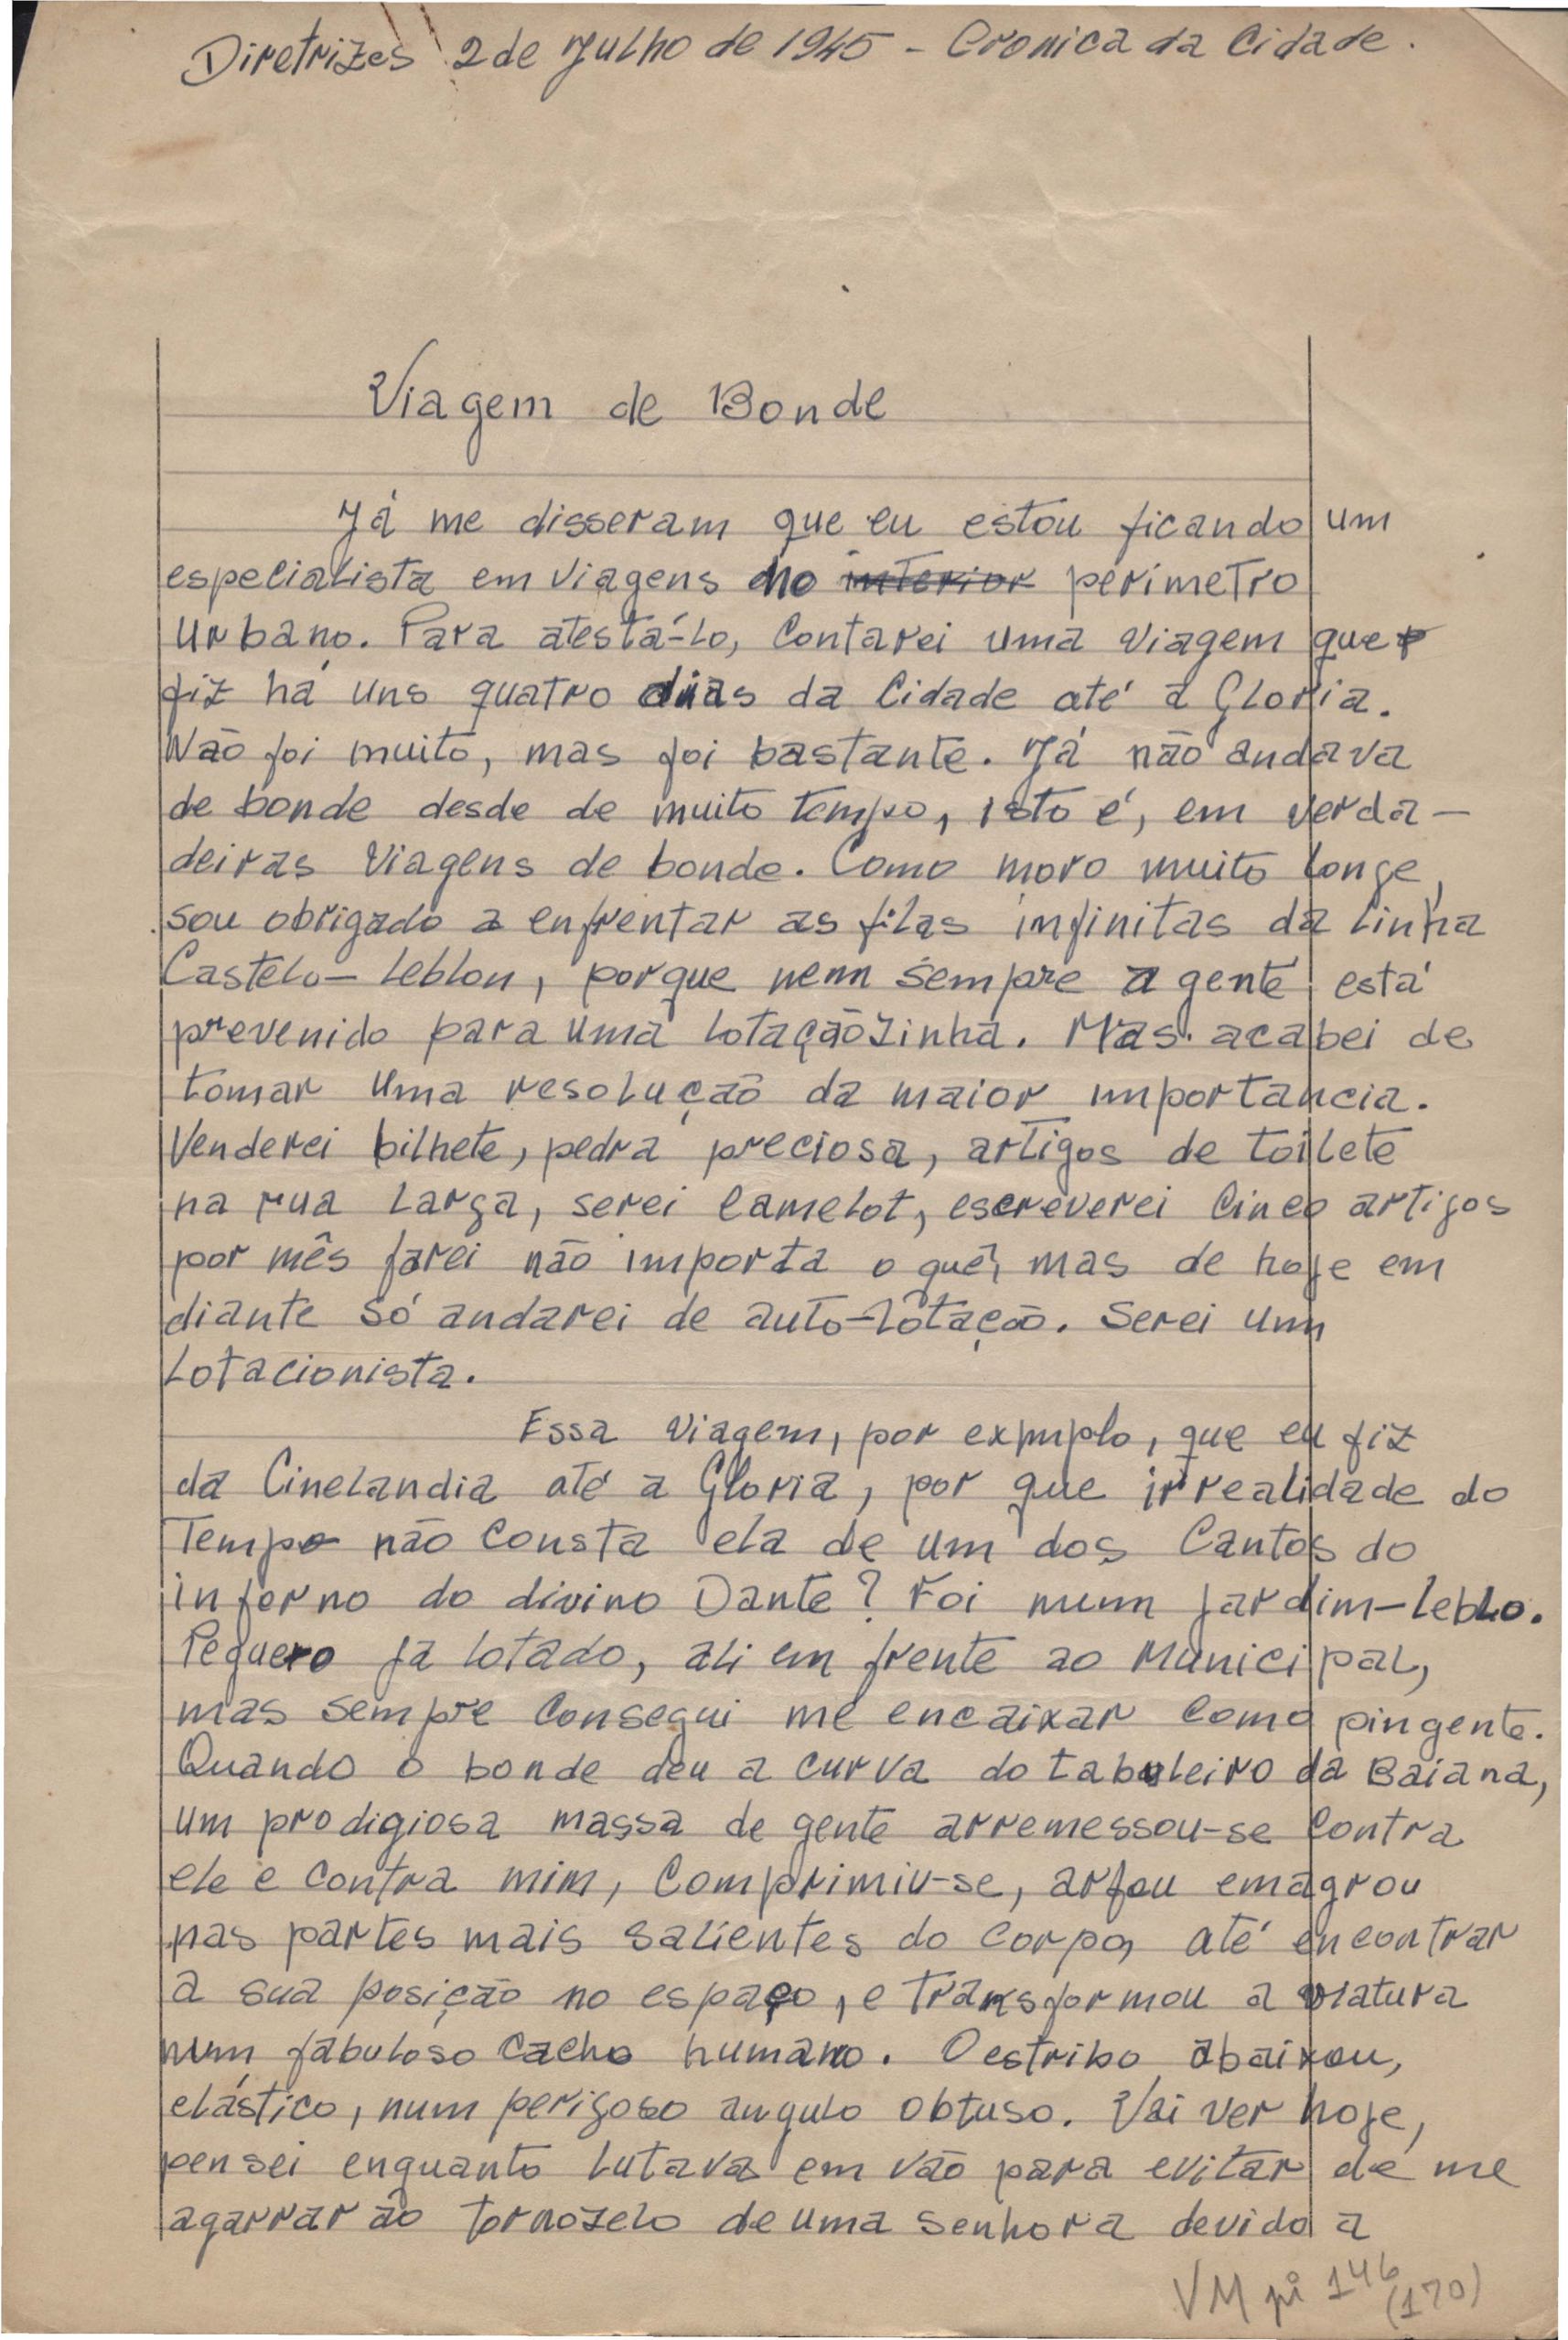 Diretrizes 2 de Julho de 1945 - Cronica da Cidade.
Viagem de Bonde
Já me disseram que eu estou ficando um
especialista em viagens no interior perímetro
urbano. Para atestá-lo, contarei uma viagem que
fiz há uns quatro dias da Cidade até a Gloria.
Não foi muito, mas foi bastante. Já não andava
de bonde desde de muito tempo, isto é, em verda-
deiras viagens de bonde. Como moro muito longe,
sou obrigado a enfrentar as filas infinitas da linha
Castelo-Leblon, porque nem sempre a gente está
prevenido para uma lotaçãozinha. Mas acabei de
tomar uma resolução da maior importancia.
Venderei bilhete, pedra preciosa, artigos de toilete
na rua Larga, serei camelot, escreverei cinco artigos
por mês farei não importa o quê, mas de hoje em
diante só andarei de auto-lotação. Serei um
lotacionista.
Essa viagem, por exemplo, que eu fiz
da Cinelandia até a Gloria, por que irrealidade do
Tempo não consta ela de um dos Cantos do
inferno do divino Dante? Foi num jardim-leblo.
Peguero ja lotado, ali em frente ao Municipal,
mas sempre consegui me encaixar como pingente.
Quando o bonde deu a curva do tabuleiro da Baiana,
um prodigiosa massa de gente arremessou-se contra
ele e contra mim, comprimiu-se, arfou emagrou
nas partes mais salientes do corpo, até encontrar
a sua posição no espaço, e transformou a viatura
num fabuloso cacho humano. O estribo abaixou,
elástico, num perigoso angulo obtuso. Vai ver hoje,
pensei enquanto lutava em vão para evitar de me
agarrar ao tornozelo de uma senhora devido a
VM pi 146
(170)